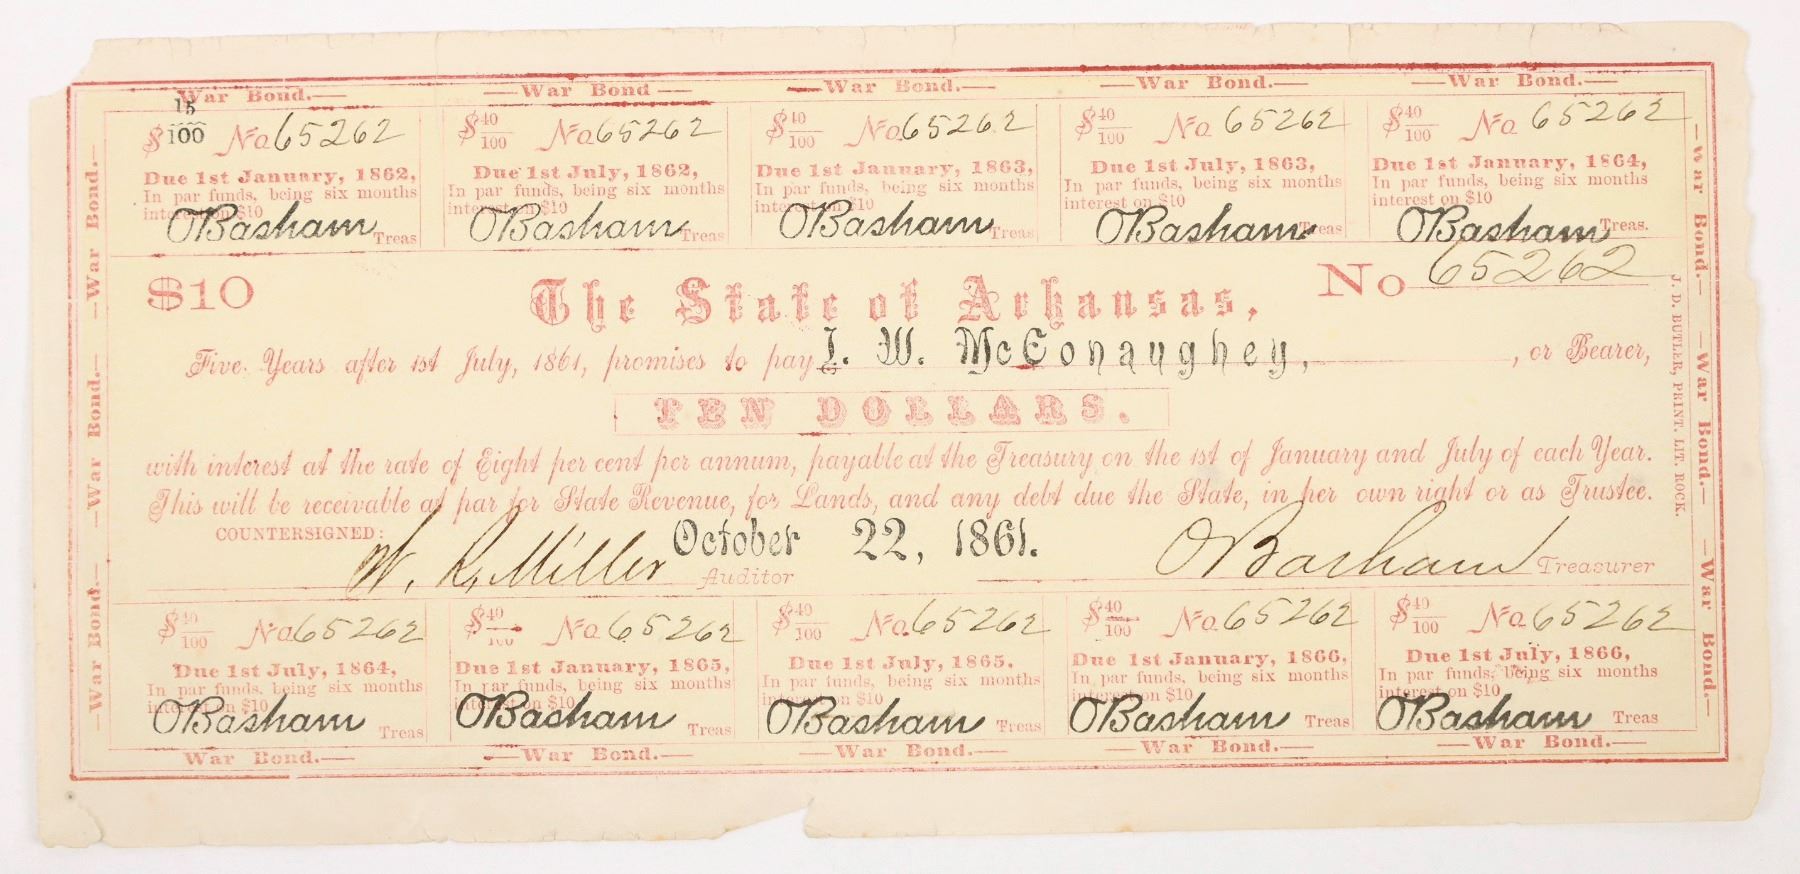 War Bond.— —War Bond— —War Bond.— —War Bond.— —War Bond.—
$ 15/100 No 65262 $ 40/100 No 65262 $ 40/100 No 65262 $ 40/100 No 65262 $ 40/100 No 65262
Due 1st January, 1862, Due 1st July, 1862, Due 1st January, 1863, Due 1st July, 1863, Due 1st January, 1864,
In par funds, being six months In par funds, being six months In par funds, being six months In par funds, being six months In par funds, being six months
interest on $10 interest on $10 interest on $10 interest on $10 interest on $10
O Basham Treas O Basham Treas O Basham Treas O Basham Treas O Basham Treas.
$10 The State of Arkansas, No 65262
Five Years after 1st July, 1861, promises to pay I. W. McConaughey, , or Bearer,
TEN DOLLARS.
with interest at the rate of Eight per cent per annum, payable at the Treasury on the 1st of January and July of each Year.
This will be receivable at par for State Revenue, for Lands, and any debt due the State, in her own right or as Trustee.
COUNTERSIGNED:
W. R. Miller Auditor October 22, 1861. O Basham Treasurer
$ 40/100 No 65262 $ 40/100 No 65262 $ 40/100 No. 65262 $ 40/100 No 65262 $ 40/100 No 65262
Due 1st July, 1864, Due 1st January, 1865, Due 1st July, 1865. Due 1st January, 1866, Due 1st July, 1866,
In par funds, being six months In par funds, being six months In par funds, being six months In par funds, being six months In par funds, being six months
interest on $10 interest on $10 interest on $10 interest on $10 interest on $10
O Basham Treas O Basham Treas O Basham Treas O Basham Treas O Basham Treas
War Bond.— —War Bond.— —War Bond.— —War Bond.— —War Bond.—
—War Bond.— —War Bond.— —War Bond.—
—War Bond.— —War Bond.— —War Bond.—
J. D. BUTLER, PRINT. LIT. ROCK.